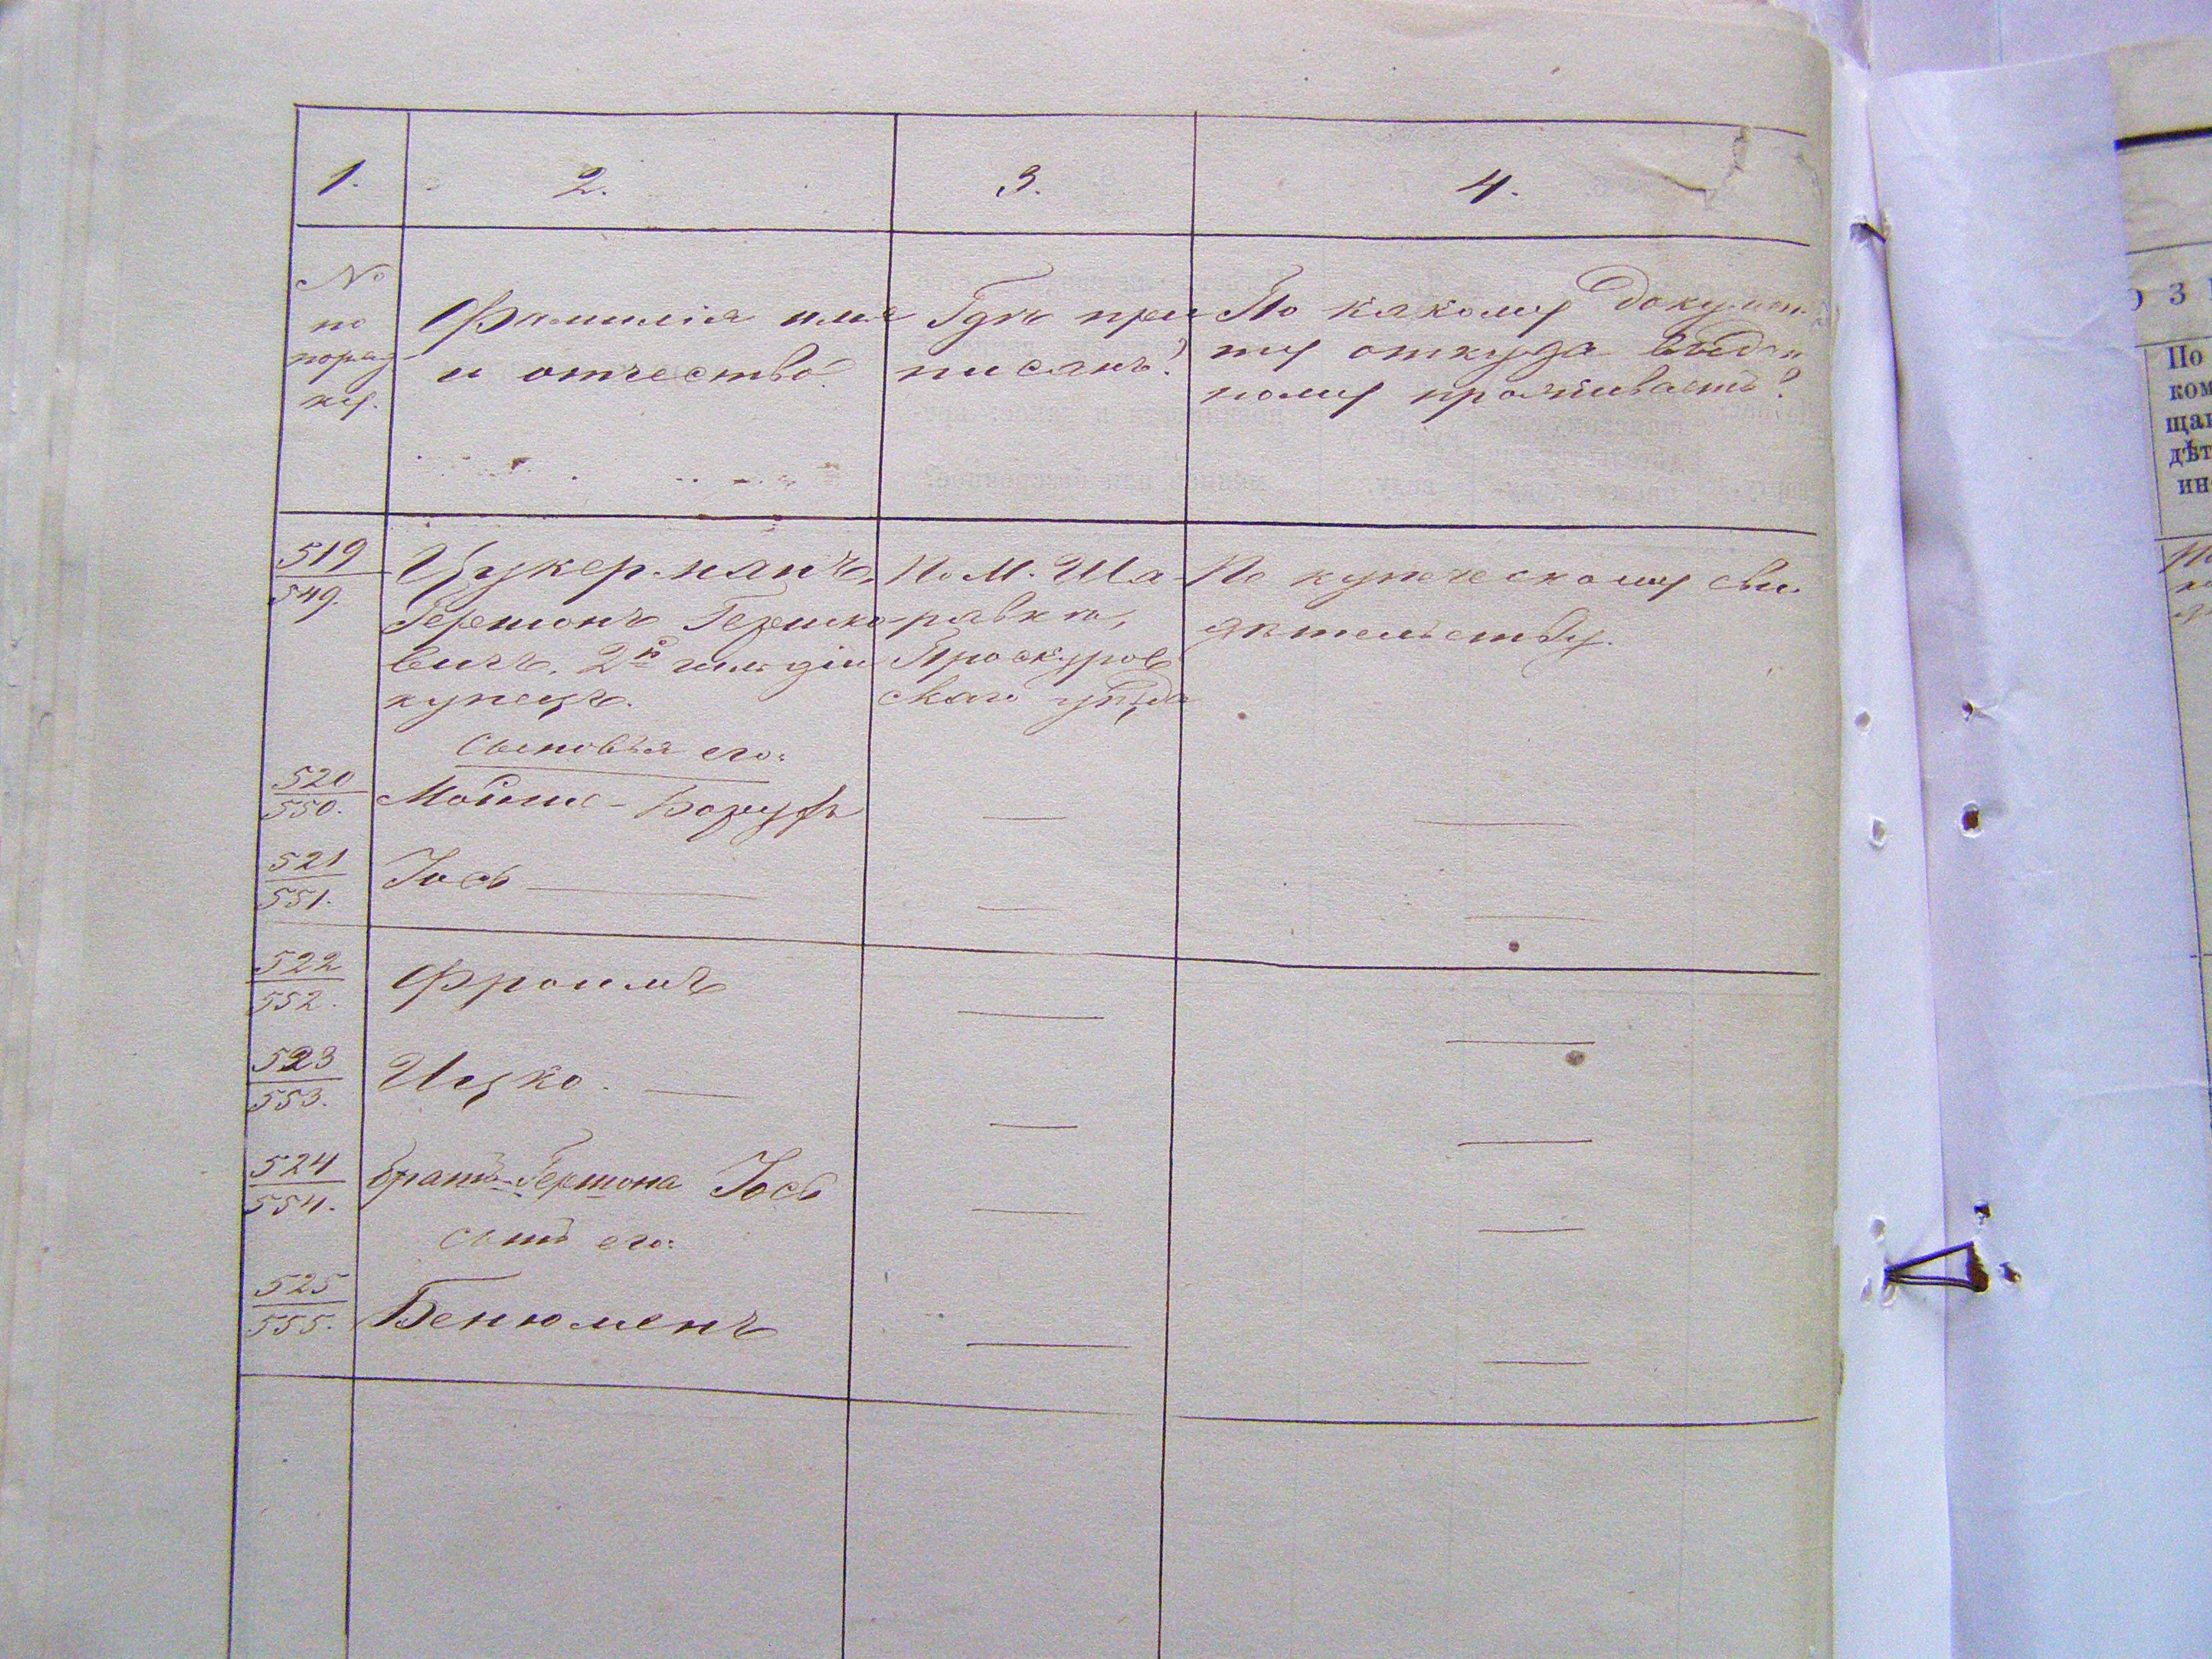 1.
2.
3.
4.
№
по
поряд-
ку.
Фамилія имя
и отчество?
Гдѣ при
писанъ?
По какому докумен
ту откуда выдан
ному проживаетъ?
519
549.
Цукерманъ,
Гершонъ Гершко-
вичъ, 2й гильдіи
купецъ.
По М. Ша-
равкѣ,
Проскуров
скаго уѣзда
По купеческому сви
дѣтельству.
сыновья его:
520
550.
Мойше-Борухъ
521
551.
Іось
522
552.
Фроимъ
523
553.
Ицко.
524
554.
братъ Гершона Іось
сынъ его:
525
555.
Бенюменъ
О З
По
ком
щаг
дѣт
ин